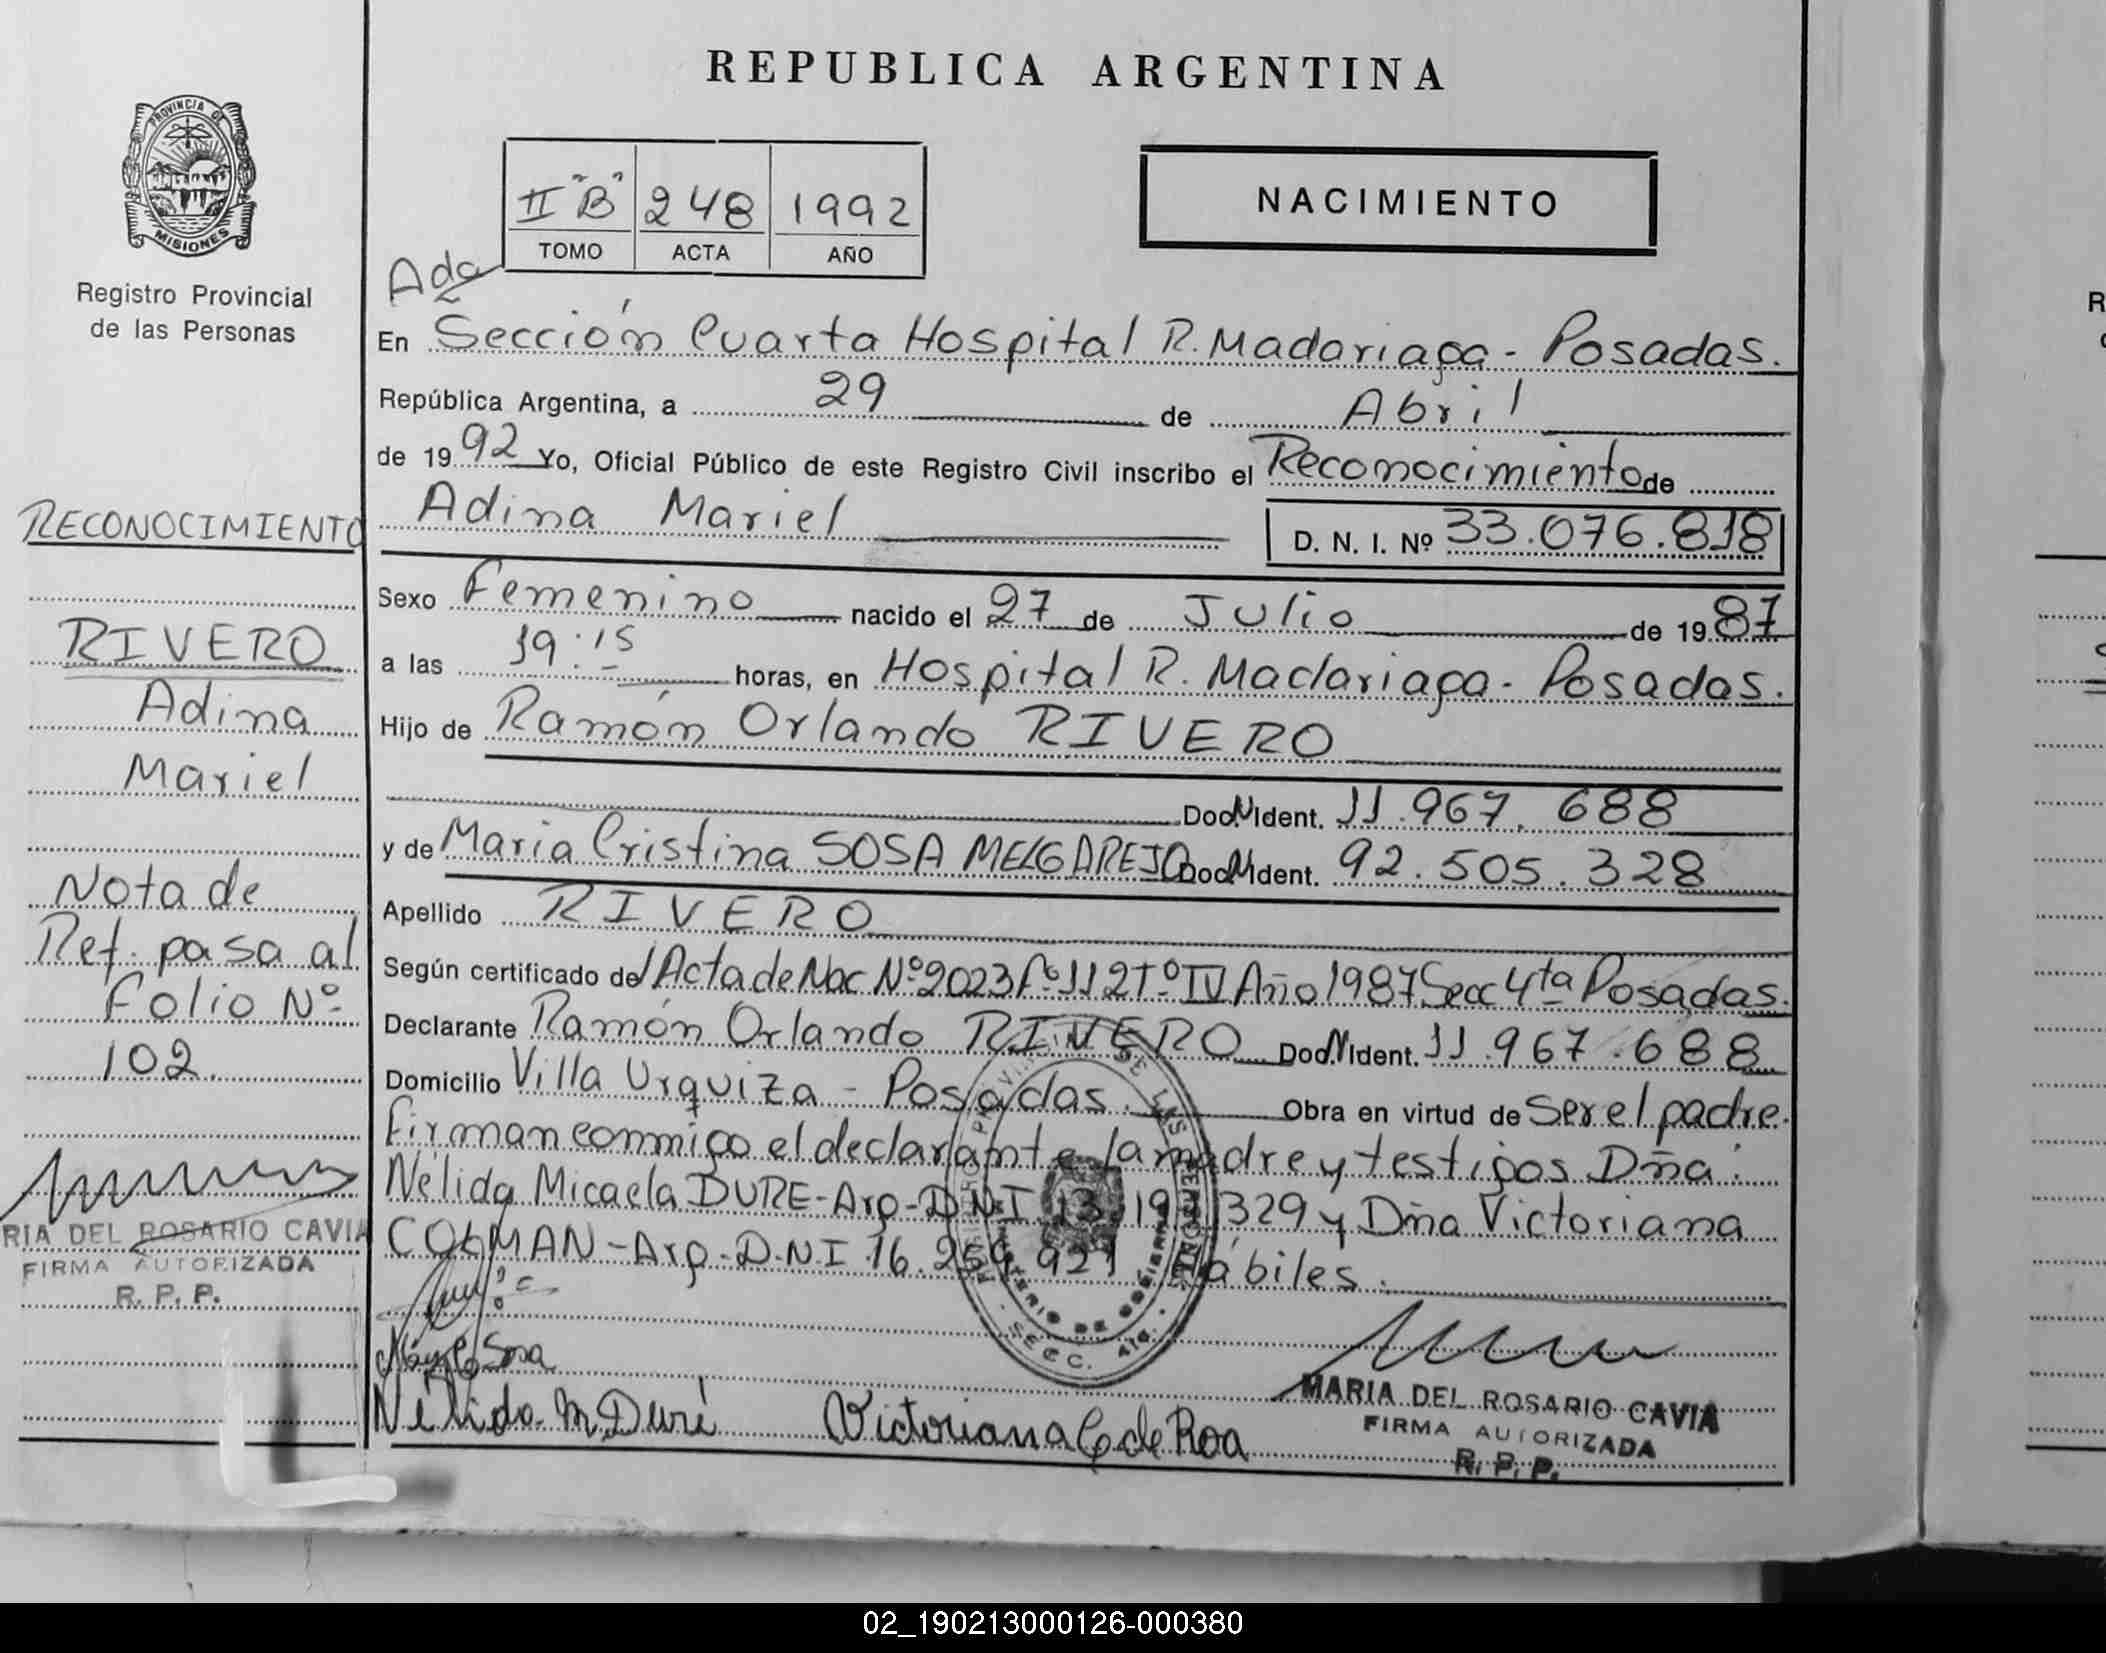 REPUBLICA ARGENTINA
PROVINCIA DE
MISIONES
Registro Provincial
de las Personas
II "B" 248 1992
TOMO ACTA AÑO
NACIMIENTO
Ada
En Sección Cuarta Hospital R. Madariaga - Posadas.
República Argentina, a 29 de Abril
de 1992 Yo, Oficial Público de este Registro Civil inscribo el Reconocimiento de
Adina Mariel
D. N. I. Nº 33.076.818
Sexo Femenino nacido el 27 de Julio de 1987
a las 19:15 horas, en Hospital R. Madariaga - Posadas.
Hijo de Ramón Orlando RIVERO
Doc. N Ident. 11.967.688
y de Maria Cristina SOSA MELGAREJO Doc. N Ident. 92.505.328
Apellido RIVERO
Según certificado de Acta de Nac Nº 2023 Fº 112 Tº IV Año 1987 Secc 4ta Posadas.
Declarante Ramón Orlando RIVERO Doc. N Ident. 11.967.688
Domicilio Villa Urquiza - Posadas. Obra en virtud de Ser el padre.
Firman conmigo el declarante la madre y testigos Dña:
Nélida Micaela DURE - Arg - D.N.I 13 19 329 y Dña Victoriana
COLMAN - Arg - D.N.I 16.259.921 Hábiles.
Sosa
Nélida M Duré Victoriana C de Roa
MARIA DEL ROSARIO CAVIA
FIRMA AUTORIZADA
R. P. P.
SECC. 4ta.
RECONOCIMIENTO
RIVERO
Adina
Mariel
Nota de
Ref. pasa al
Folio Nº
102.
RIA DEL ROSARIO CAVIA
FIRMA AUTORIZADA
R. P. P.
02_190213000126-000380